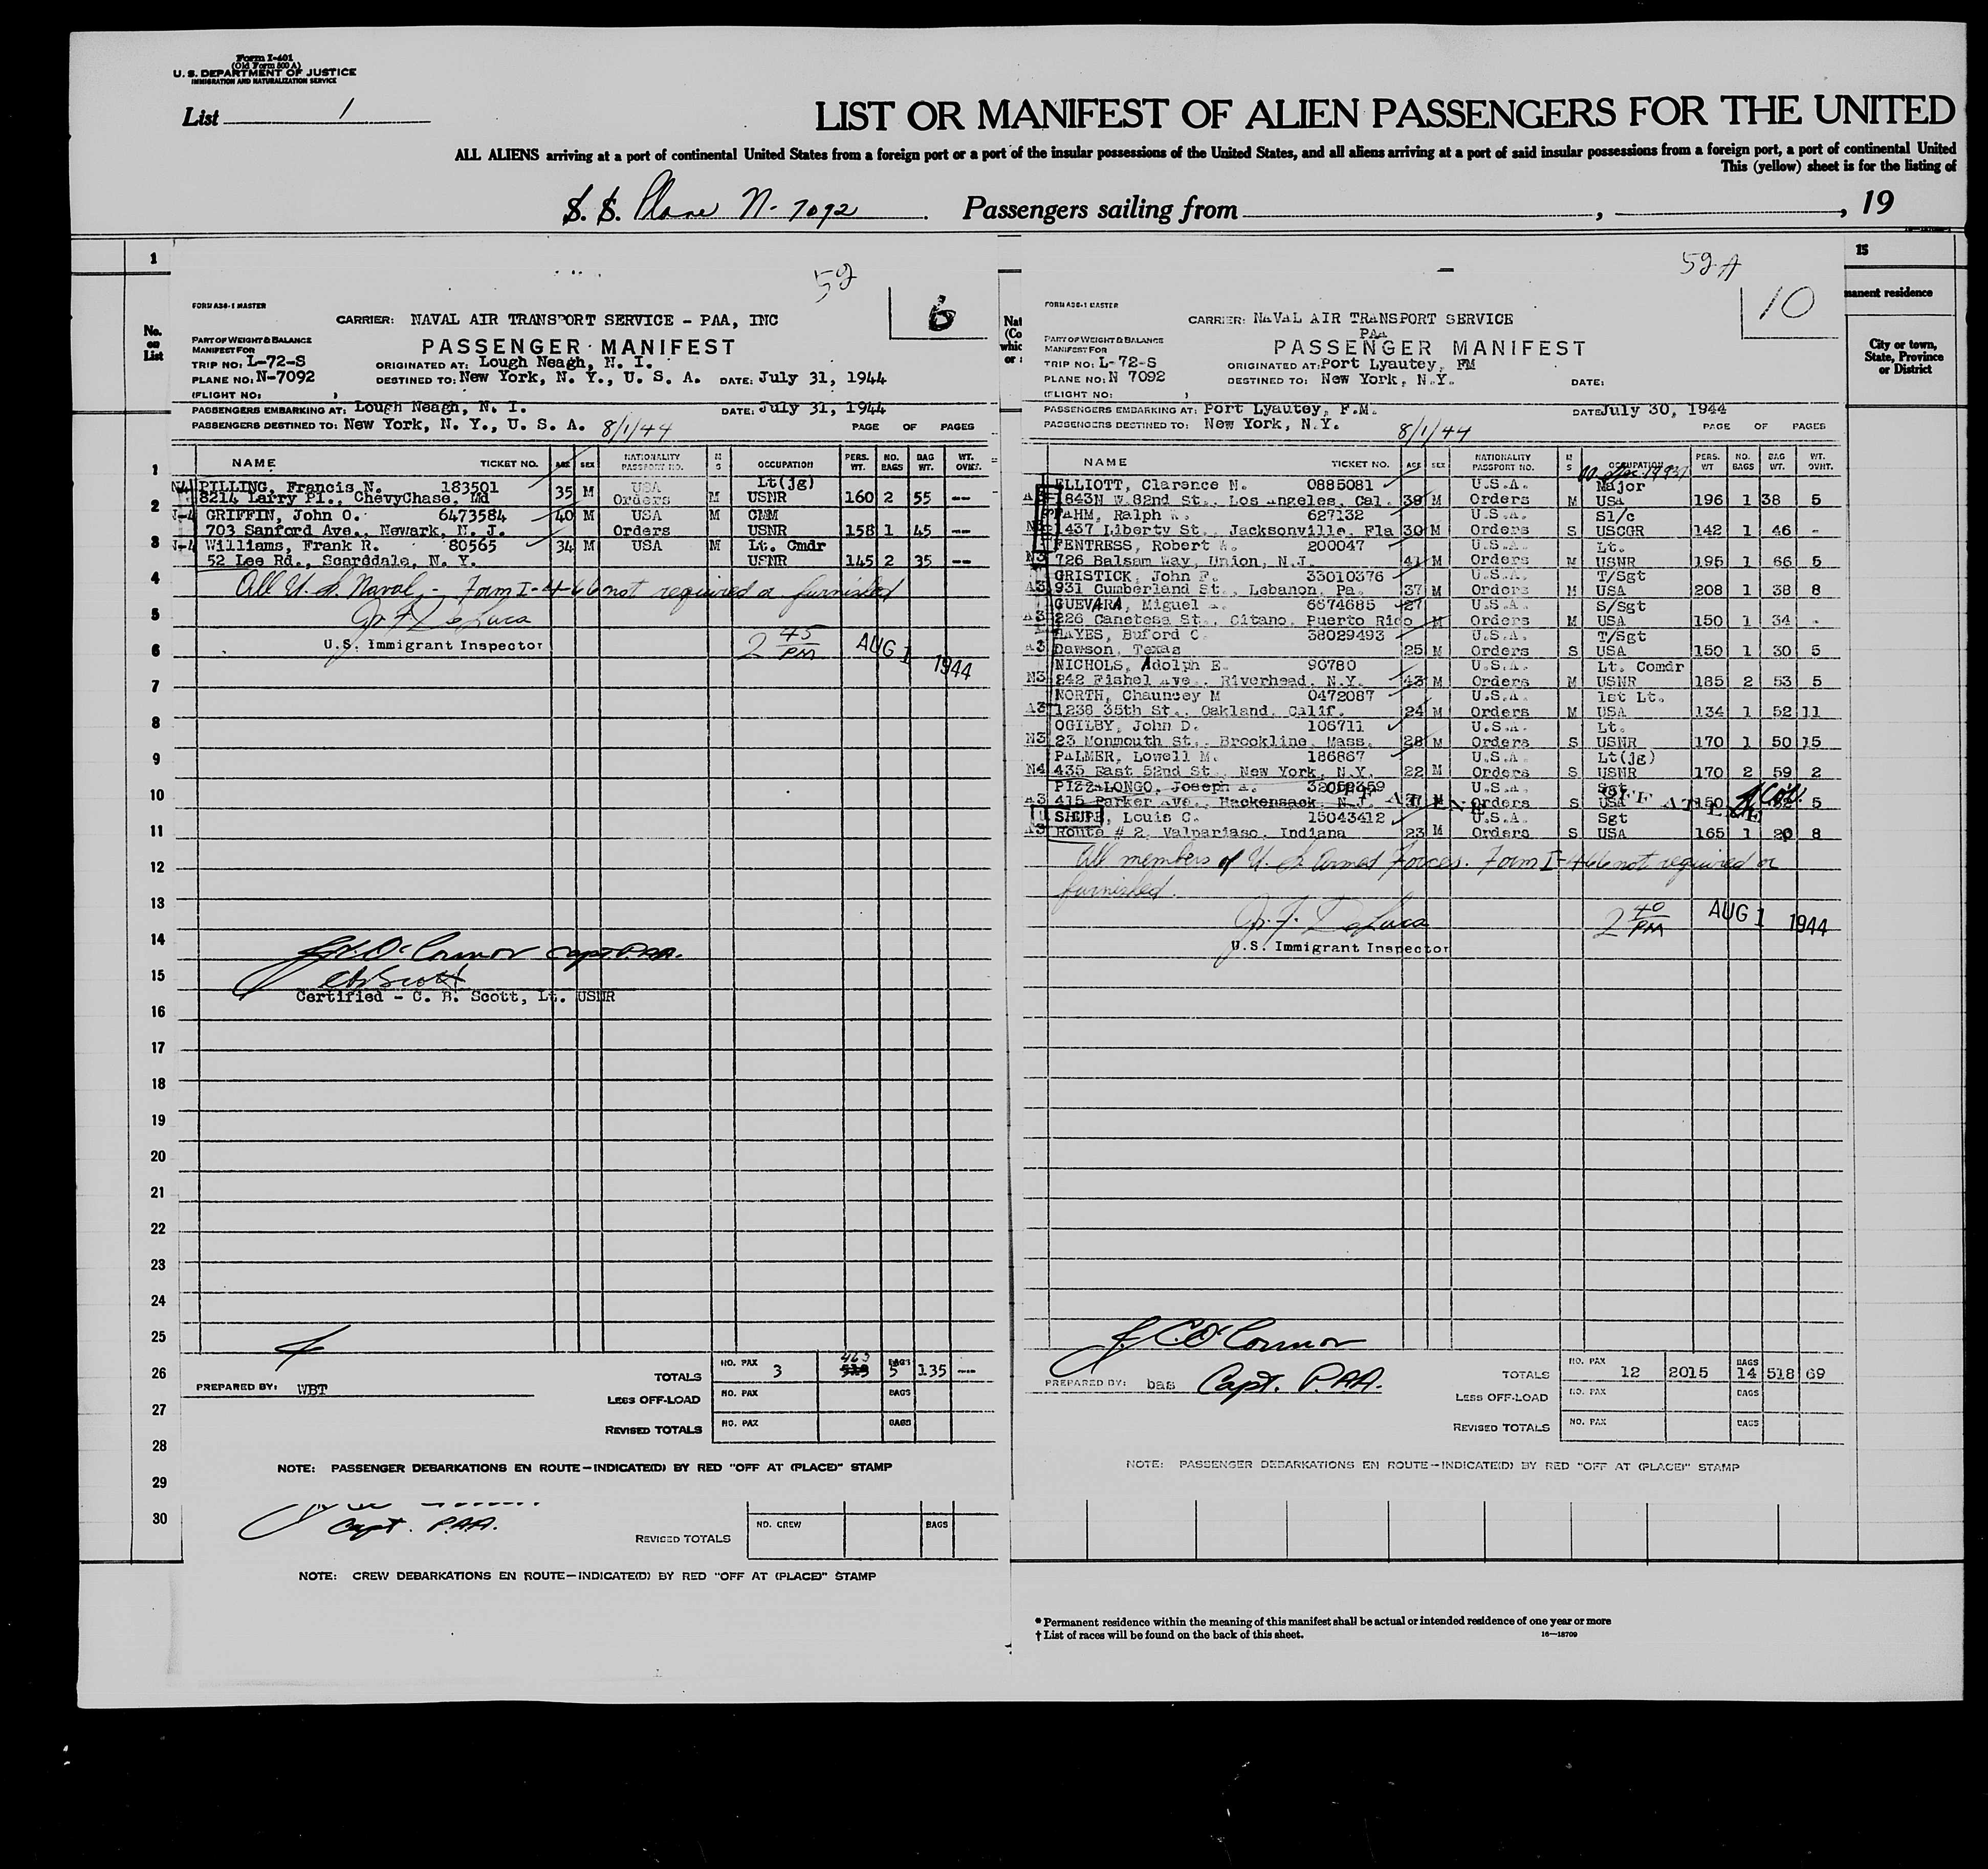 Form I-401
(Old Form 500 A)
U. S. DEPARTMENT OF JUSTICE
IMMIGRATION AND NATURALIZATION SERVICE
List 1
LIST OR MANIFEST OF ALIEN PASSENGERS FOR THE UNITED
ALL ALIENS arriving at a port of continental United States from a foreign port or a port of the insular possessions of the United States, and all aliens arriving at a port of said insular possessions from a foreign port, a port of continental United
This (yellow) sheet is for the listing of
S. S. Plane N-7092. Passengers sailing from , , 19
1
No. on List
59
6
FORM A36-1 MASTER
CARRIER: NAVAL AIR TRANSPORT SERVICE - PAA, INC
PART OF WEIGHT & BALANCE
MANIFEST FOR
PASSENGER MANIFEST
TRIP NO: L-72-S ORIGINATED AT: Lough Neagh, N. I.
PLANE NO: N-7092 DESTINED TO: New York, N. Y., U. S. A. DATE: July 31, 1944
(FLIGHT NO: )
PASSENGERS EMBARKING AT: Lough Neagh, N. I. DATE: July 31, 1944
PASSENGERS DESTINED TO: New York, N. Y., U. S. A. 8/1/44 PAGE OF PAGES
NAME TICKET NO. AGE SEX NATIONALITY PASSPORT NO. M S OCCUPATION PERS. WT. NO. BAGS BAG WT. WT. OVHT.
N4 PILLING, Francis N. 183501 USA Lt(jg)
8214 Larry Pl., ChevyChase, Md 35 M Orders M USNR 160 2 55 --
N-4 GRIFFIN, John O. 6473584 40 M USA M CMM
703 Sanford Ave., Newark, N. J. Orders USNR 158 1 45 --
N-4 Williams, Frank R. 80565 34 M USA M Lt. Cmdr
52 Lee Rd., Scarsdale, N. Y. USNR 145 2 35 --
All U. S. Naval - Form I-466 not required or furnished
J. F. DeLuca
U.S. Immigrant Inspector
2 45 PM AUG 1 1944
J. C. O'Connor Capt. P.A.A.
C B Scott
Certified - C. B. Scott, Lt. USNR
1
2
3
4
5
6
7
8
9
10
11
12
13
14
15
16
17
18
19
20
21
22
23
24
25
26
27
28
29
30
TOTALS NO. PAX 3 463 BAGS 5 135 --
PREPARED BY: WBT
LESS OFF-LOAD NO. PAX BAGS
REVISED TOTALS NO. PAX BAGS
NOTE: PASSENGER DEBARKATIONS EN ROUTE—INDICATE(D) BY RED "OFF AT (PLACE)" STAMP
Capt. P.A.A.
REVISED TOTALS NO. CREW BAGS
NOTE: CREW DEBARKATIONS EN ROUTE—INDICATE(D) BY RED "OFF AT (PLACE)" STAMP
59 A
10
FORM A36-1 MASTER
CARRIER: NAVAL AIR TRANSPORT SERVICE
PAA
PART OF WEIGHT & BALANCE
MANIFEST FOR
PASSENGER MANIFEST
TRIP NO: L-72-S ORIGINATED AT: Port Lyautey, FM
PLANE NO: N 7092 DESTINED TO: New York, N.Y. DATE:
(FLIGHT NO: )
PASSENGERS EMBARKING AT: Port Lyautey, F.M. DATE July 30, 1944
PASSENGERS DESTINED TO: New York, N.Y. 8/1/44 PAGE OF PAGES
NAME TICKET NO. AGE SEX NATIONALITY PASSPORT NO. M S OCCUPATION PERS. WT NO. BAGS BAG WT. WT. OVHT.
ELLIOTT, Clarence N. 0885081 U.S.A. Major
1843N W.82nd St., Los Angeles, Cal. 39 M Orders M USA 196 1 38 5
Ralph 627132 U.S.A. S1/c
1437 Liberty St., Jacksonville, Fla 30 M Orders S USCGR 142 1 46 -
FENTRESS, Robert W. 200047 U.S.A. Lt.
N3 726 Balsam Way, Union, N.J. 41 M Orders M USNR 195 1 66 5
GRISTICK, John F. 33010376 U.S.A. T/Sgt
A3 931 Cumberland St., Lebanon, Pa. 37 M Orders M USA 208 1 38 8
GUEVARA, Miguel A. 6574685 27 U.S.A. S/Sgt
A3 226 Canetesa St., Citano, Puerto Rico M Orders M USA 150 1 34 -
HAYES, Buford C. 38029493 U.S.A. T/Sgt
A3 Dawson, Texas 25 M Orders S USA 150 1 30 5
NICHOLS, Adolph E. 90780 U.S.A. Lt. Comdr
N3 242 Fishel Ave., Riverhead, N.Y. 43 M Orders M USNR 185 2 53 5
NORTH, Chauncey M 0472087 U.S.A. 1st Lt.
A3 1238 35th St., Oakland, Calif. 24 M Orders M USA 134 1 52 11
OGILBY, John D. 106711 U.S.A. Lt.
N3 23 Monmouth St., Brookline, Mass. 28 M Orders S USNR 170 1 50 15
PALMER, Lowell M. 186867 U.S.A. Lt(jg)
N4 435 East 52nd St., New York, N.Y. 22 M Orders S USNR 170 2 59 2
PIZZALONGO, Joseph A. U.S.A. Sgt
A3 415 Parker Ave., Hackensack, N.J. M Orders S USA 150 5
SHUPE, Louis C. 15043412 U.S.A. Sgt
A3 Route # 2, Valpariaso, Indiana 23 M Orders S USA 165 1 20 8
All members of U. S. Armed Forces. Form I-466 not required or
furnished.
J. F. DeLuca
U.S. Immigrant Inspector
2 40 PM AUG 1 1944
J. C. O'Connor
Capt. P.A.A.
TOTALS NO. PAX 12 2015 BAGS 14 518 69
PREPARED BY: bas
LESS OFF-LOAD NO. PAX BAGS
REVISED TOTALS NO. PAX BAGS
NOTE: PASSENGER DEBARKATIONS EN ROUTE—INDICATE(D) BY RED "OFF AT (PLACE)" STAMP
15
manent residence
City or town, State, Province or District
* Permanent residence within the meaning of this manifest shall be actual or intended residence of one year or more
† List of races will be found on the back of this sheet.
16—18709